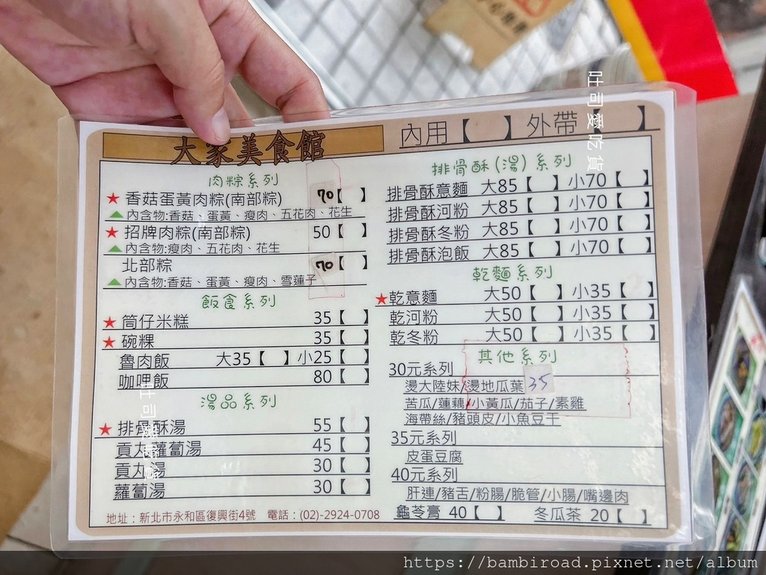 大家美食館
內用【 】外帶【 】
肉粽系列
★香菇蛋黃肉粽(南部粽) 70【 】
▲內含物:香菇、蛋黃、瘦肉、五花肉、花生
★招牌肉粽(南部粽) 50【 】
▲內含物:瘦肉、五花肉、花生
北部粽 70【 】
▲內含物:香菇、蛋黃、瘦肉、雪蓮子
飯食系列
★筒仔米糕 35【 】
★碗粿 35【 】
魯肉飯 大35【 】小25【 】
咖哩飯 80【 】
湯品系列
★排骨酥湯 55【 】
貢丸蘿蔔湯 45【 】
貢丸湯 30【 】
蘿蔔湯 30【 】
地址：新北市永和區復興街4號 電話：(02)-2924-0708
排骨酥(湯)系列
排骨酥意麵 大85【 】小70【 】
排骨酥河粉 大85【 】小70【 】
排骨酥冬粉 大85【 】小70【 】
排骨酥泡飯 大85【 】小70【 】
乾麵系列
★乾意麵 大50【 】小35【 】
乾河粉 大50【 】小35【 】
乾冬粉 大50【 】小35【 】
其他系列
30元系列
燙大陸妹/燙地瓜葉 35
苦瓜/蓮藕/小黃瓜/茄子/素雞
海帶絲/豬頭皮/小魚豆干
35元系列
皮蛋豆腐
40元系列
肝連/豬舌/粉腸/脆管/小腸/嘴邊肉
龜苓膏 40【 】 冬瓜茶 20【 】
吐司愛吃貨
吐司愛吃貨
https://bambiroad.pixnet.net/album